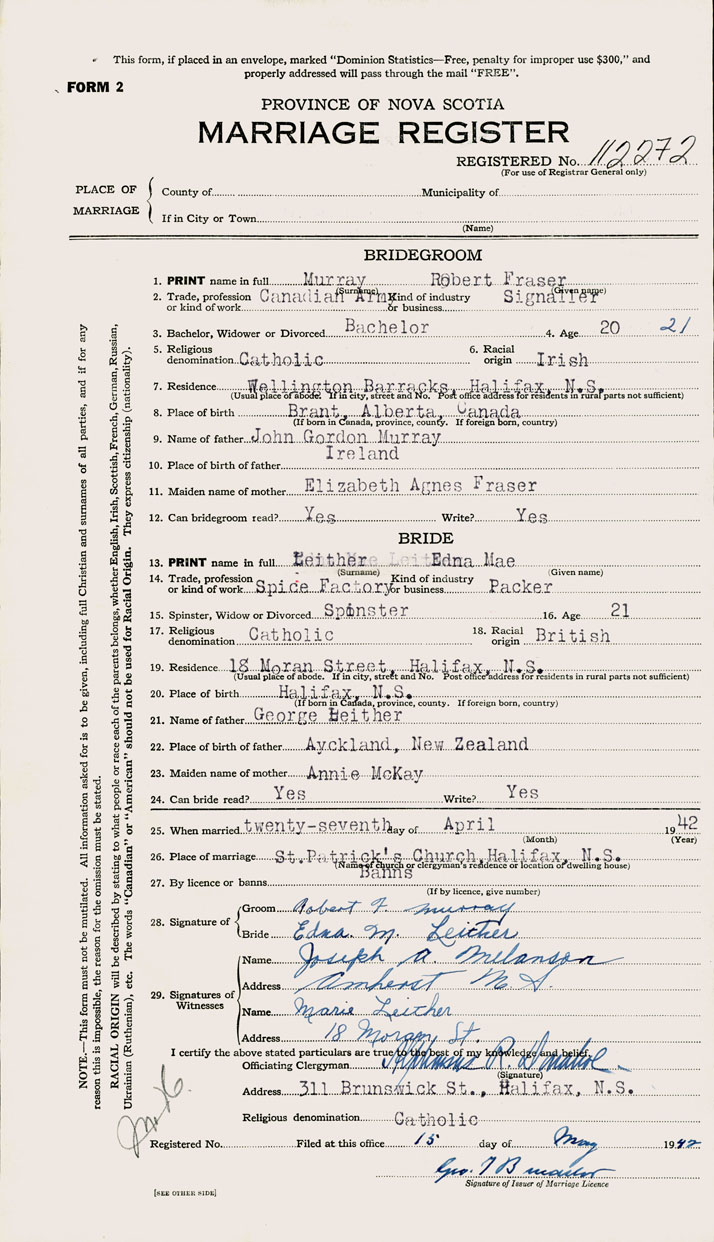 This form, if placed in an envelope, marked "Dominion Statistics—Free, penalty for improper use $300," and
properly addressed will pass through the mail "FREE".
FORM 2
PROVINCE OF NOVA SCOTIA
MARRIAGE REGISTER
REGISTERED No. 112272
(For use of Registrar General only)
PLACE OF MARRIAGE
County of Municipality of
If in City or Town
(Name)
BRIDEGROOM
1. PRINT name in full Murray Robert Fraser
(Surname) (Given name)
2. Trade, profession or kind of work Canadian Army Kind of industry or business Signaller
3. Bachelor, Widower or Divorced Bachelor 4. Age 20 21
5. Religious denomination Catholic 6. Racial origin Irish
7. Residence Wellington Barracks, Halifax, N.S.
(Usual place of abode. If in city, street and No. Post office address for residents in rural parts not sufficient)
8. Place of birth Brant, Alberta, Canada
(If born in Canada, province, county. If foreign born, country)
9. Name of father John Gordon Murray
10. Place of birth of father Ireland
11. Maiden name of mother Elizabeth Agnes Fraser
12. Can bridegroom read? Yes Write? Yes
BRIDE
13. PRINT name in full Leither Edna Mae
(Surname) (Given name)
14. Trade, profession or kind of work Spice Factory Kind of industry or business Packer
15. Spinster, Widow or Divorced Spinster 16. Age 21
17. Religious denomination Catholic 18. Racial origin British
19. Residence 18 Moran Street, Halifax, N.S.
(Usual place of abode. If in city, street and No. Post office address for residents in rural parts not sufficient)
20. Place of birth Halifax, N.S.
(If born in Canada, province, county. If foreign born, country)
21. Name of father George Leither
22. Place of birth of father Ayckland, New Zealand
23. Maiden name of mother Annie McKay
24. Can bride read? Yes Write? Yes
25. When married twenty-seventh day of April 1942
(Month) (Year)
26. Place of marriage St.Patrick's Church,Halifax, N.S.
(Name of church or clergyman's residence or location of dwelling house)
27. By licence or banns Banns
(If by licence, give number)
28. Signature of
Groom Robert F Murray
Bride Edna. M. Leither
29. Signatures of Witnesses
Name Joseph A. Melanson
Address Amherst N.S.
Name Marie Leither
Address 18 Morgan St.
I certify the above stated particulars are true to the best of my knowledge and belief.
Officiating Clergyman Alphonsus R.
(Signature)
Address 311 Brunswick St., Halifax, N.S.
Religious denomination Catholic
Registered No. Filed at this office 15 day of May 1942
Geo. T
Signature of Issuer of Marriage Licence
[SEE OTHER SIDE]
NOTE.—This form must not be mutilated. All information asked for is to be given, including full Christian and surnames of all parties, and if for any
reason this is impossible, the reason for the omission must be stated.
RACIAL ORIGIN will be described by stating to what people or race each of the parents belongs, whether English, Irish, Scottish, French, German, Russian,
Ukrainian (Ruthenian), etc. The words "Canadian" or "American" should not be used for Racial Origin. They express citizenship (nationality).